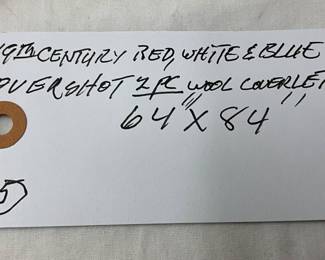 19TH CENTURY RED, WHITE & BLUE
OVERSHOT 2 PC WOOL COVERLET
64" X 84"
5